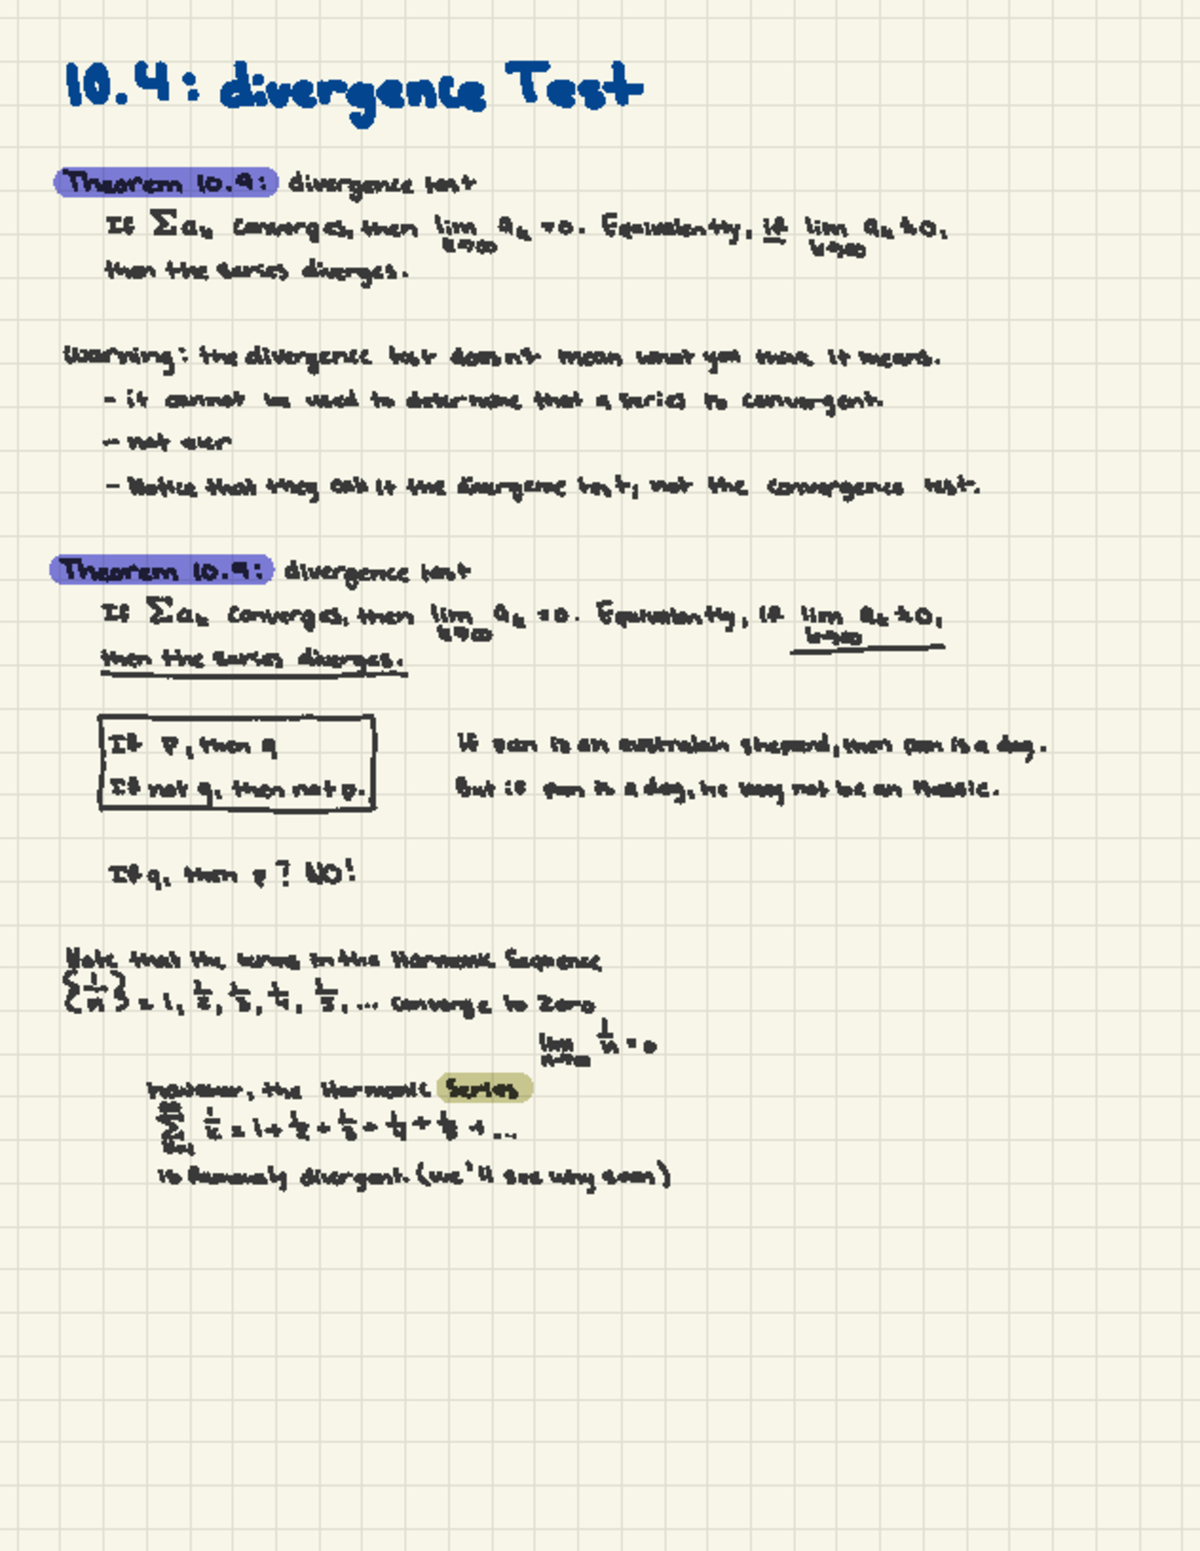 10.4: divergence Test
Theorem 10.9: divergence test
If Σaₖ converges, then lim aₖ = 0. Equivalently, if lim aₖ ≠ 0,
k→∞ k→∞
then the series diverges.
Warning: the divergence test doesn't mean what you think it means.
- it cannot be used to determine that a series is convergent.
- not ever
- Notice that they call it the divergence test, not the convergence test.
Theorem 10.9: divergence test
If Σaₖ converges, then lim aₖ = 0. Equivalently, if lim aₖ ≠ 0,
k→∞ k→∞
then the series diverges.
If p, then q
If not q, then not p.
If is an australain sheperd, then is a dog.
But if is a dog, he may not be an Aussie.
If q, then p? NO!
Note that the terms in the Harmonic Sequence
{1/n} = 1, 1/2, 1/3, 1/4, 1/5, ... converge to zero
lim 1/n = 0
n→∞
however, the Harmonic Series
∞
Σ 1/k = 1 + 1/2 + 1/3 + 1/4 + 1/5 + ...
k=1
is famously divergent. (we'll see why soon)